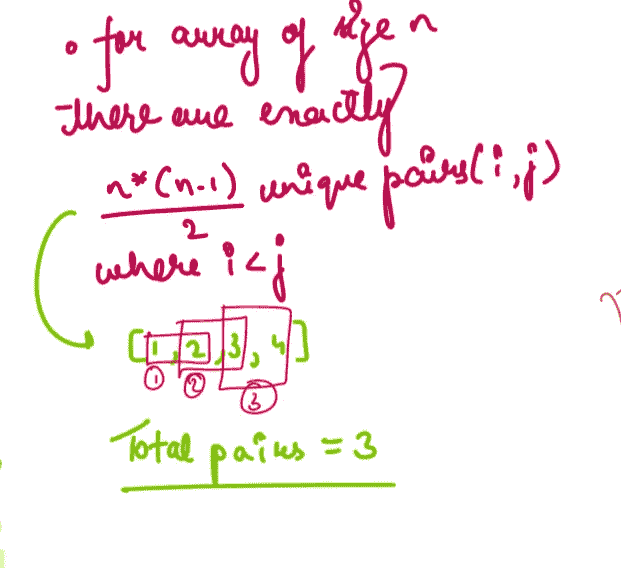 • for array of size n
There are exactly
n*(n-1)
2
unique pairs(i,j)
where i<j
[1,2,3,4]
1 2 3
Total pairs = 3